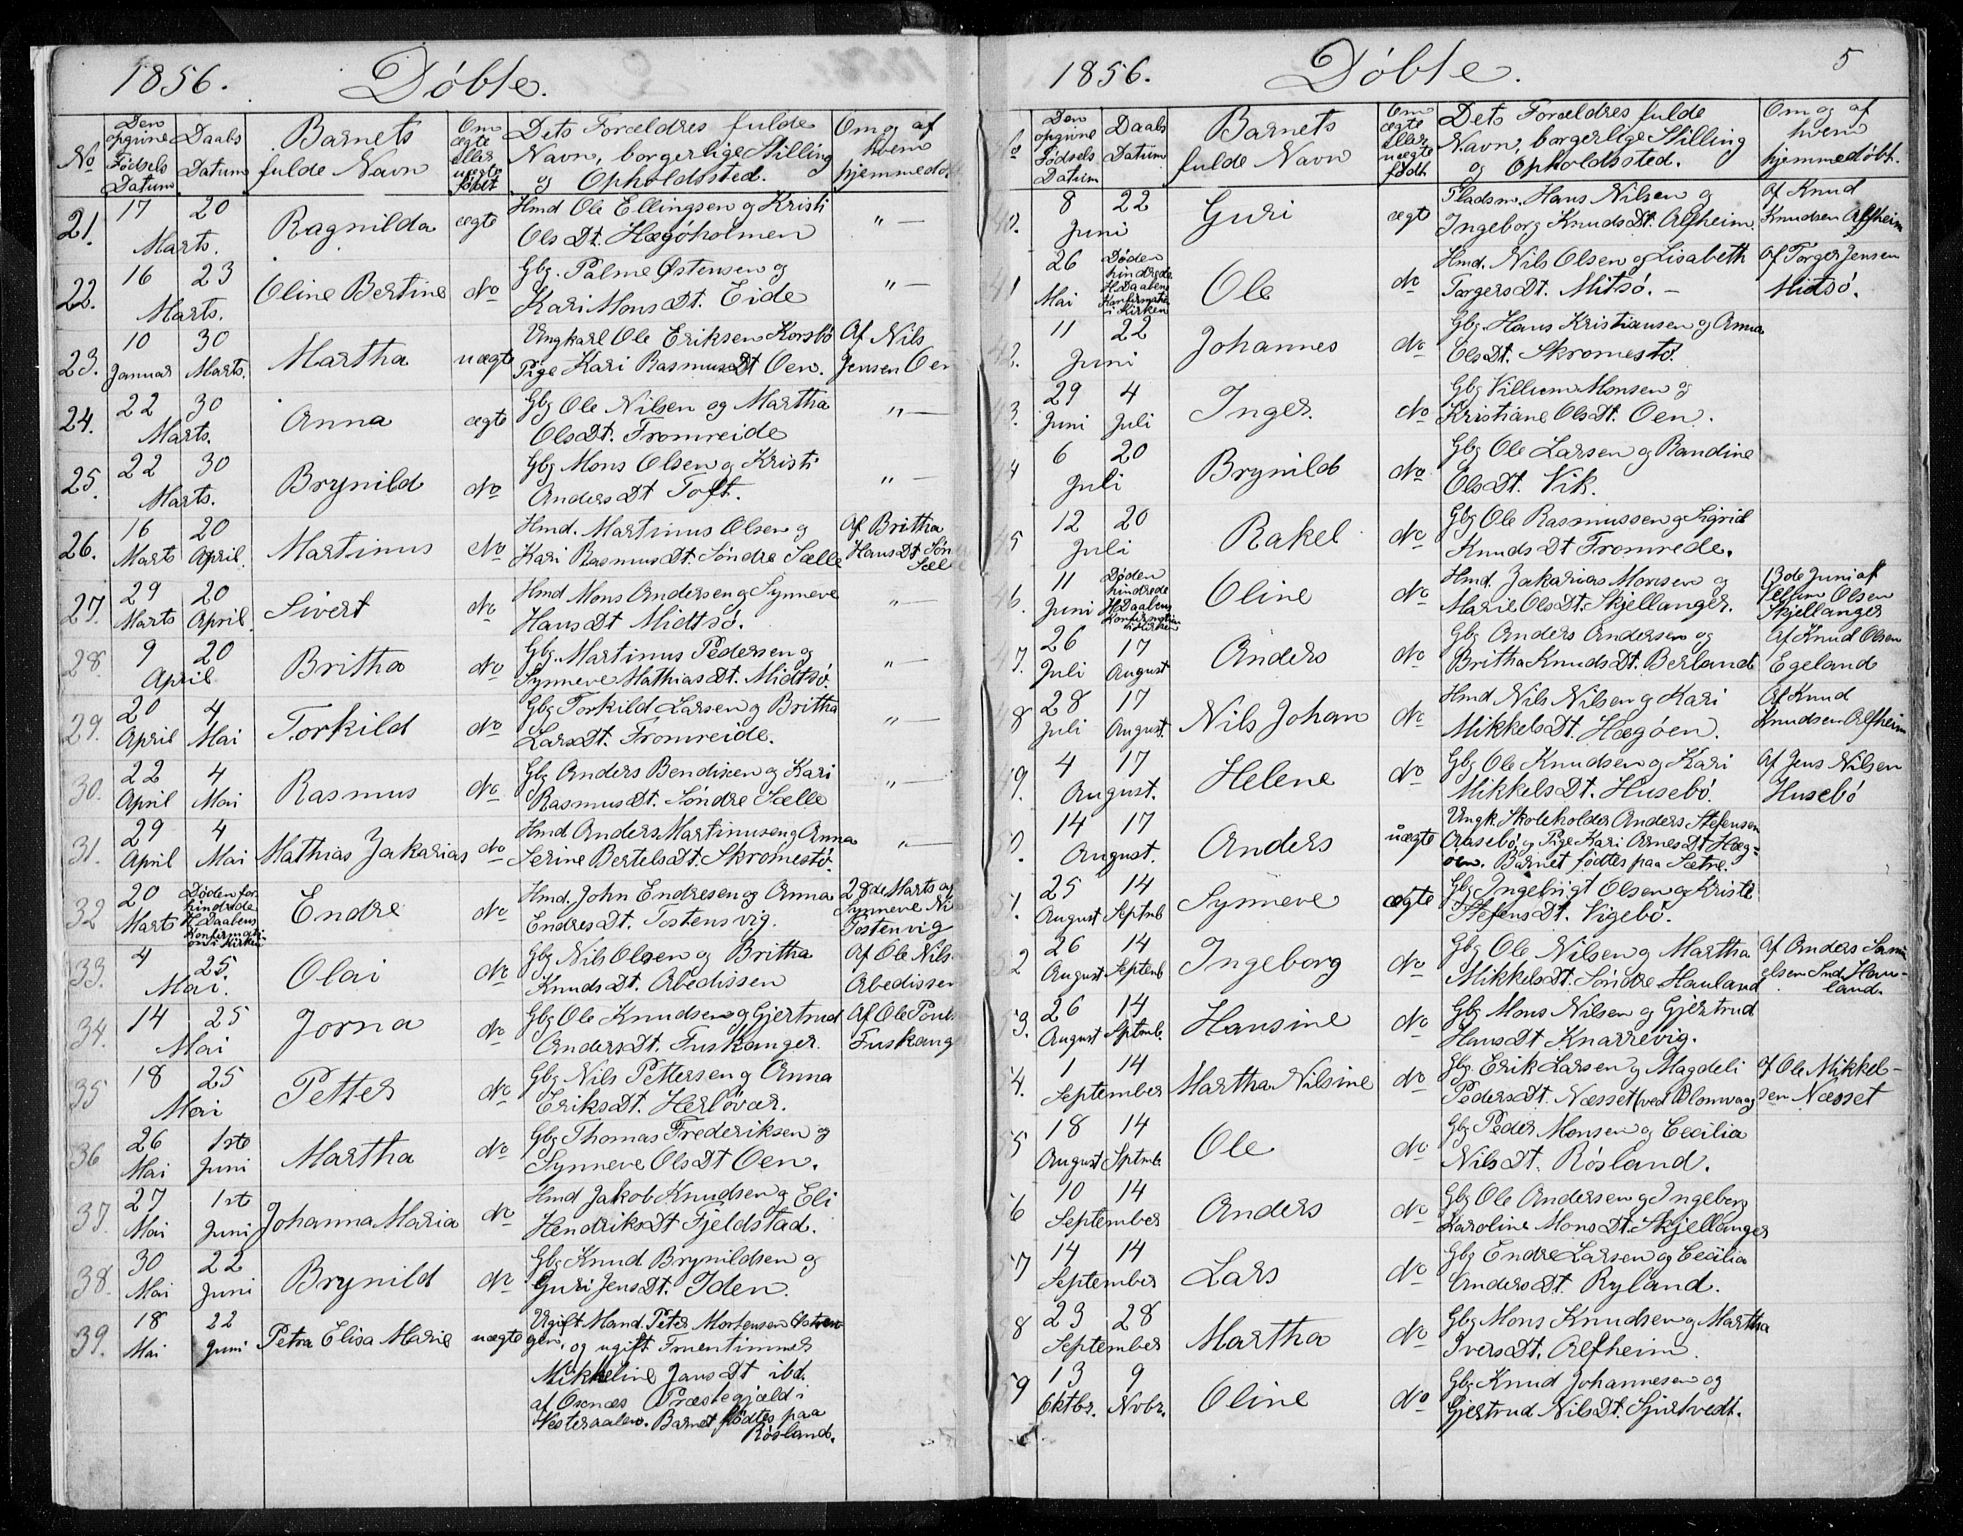 1856. Døbte.
No
Den opgivne Fødsels Datum
Daabs Datum
Barnets fulde Navn
Om ægte eller uægte født
Dets Forældres fulde Navn, borgerlige Stilling og Opholdssted.
Om og af hvem hjemmedø
21. 17 20 Marts. Ragnilda ægte Hmd Ole Ellingsen og Kristi „ —
Ols Dt. Hægøholmen
22. 16 23 Marts. Oline Bertine do Gbg. Palme Østensen og „ —
Kari Mons Dt. Eide
23. 10 Januar 30 Marts. Martha uægte Ungkarl Ole Eriksen Korsø Af Nils
Pige Kari Rasmus Dt Oen. Jensen Oen
24. 22 30 Marts. Anna ægte Gbg Ole Nilsen og Martha „ —
Ols Dt. Fromreide
25. 22 30 Marts. Brynild do Gbg Mons Olsen og Kristi „ —
Anders Dt Toft.
26. 16 Marts 20 April. Martinus do Hmd. Martinus Olsen og Af Britha
Kari Rasmus Dt. Søndre Sælle Hans Dt Søn
Sælle
27. 29 Marts 20 April. Sivert do Hmd Mons Andersen og Synneve „ —
Hans Dt Midtsø.
28. 9 20 April Britha do Gbg. Martinus Pedersen og „ —
Synneve Mathias Dt. Midtsø.
29. 20 April 4 Mai Torkild do Gbg Torkild Larsen og Britha „ —
Lars Dt. Fromreide.
30. 22 April 4 Mai Rasmus do Gbg Anders Bendixen og Kari „ —
Rasmus Dt. Søndre Sælle
31. 29 April 4 Mai Mathias Zakarias do Hmd Anders Martinusen og Anna „ —
Serine Bertels Dt. Skromestø.
32 20 Marts Døden forhindrede H. Daabens Konfirmation i Kirken Endre do Hmd. John Endresen og Anna 28de Marts af
Endres Dt. Tostensvig. Synneve Ni
Tostenvig
33. 4 25. Mai. Olai do Gbg Nils Olsen og Britha Af Ole Nils
Knuds Dt. Abedissen Abedissen
34. 14 25 Mai Jorna do Gbg Ole Knudsen og Gjertrud Af Ole Pouls
Anders Dt. Fuskanger. Fuskange
35 18 25 Mai Petter do Gbg Nils Pettersen og Anna
Eriks Dt. Herløvær.
36 26 Mai 1ste Juni Martha do Gbg Thomas Frederiksen og
Synneve Ols Dt Oen.
37. 27 Mai 1ste Juni Johanna Maria do Hmd Jakob Knudsen og Eli
Hendriks Dt Fjeldstad.
38. 30 Mai 22 Juni Brynild do Gbg Knud Brynildsen og
Guri Jens Dt. Iden.
39. 18 Mai 22 Juni Petra Elisa Marie uægte Ugift Mand. Peter Mortensen
gen, og ugift Fruentimmer
Mikkeline Jans Dt ibd.
af Oxnæs Præstegjeld i
Vesteraalen. Barnet fødtes paa
Røsland.
1856. Døbte. 5
Den opgivne Fødsels Datum
Daabs Datum
Barnets fulde Navn
Om ægte eller uægte født.
Dets Forældres fulde Navn, borgerlige Stilling og Opholdssted.
Om og af hvem hjemmedøbt.
40. 8 22 Juni Guri ægt Pladsm. Hans Nilsen og Af Knud
Ingeborg Knuds Dt. Alfheim. Knudsen Alfheim
41 26 Mai Døden hindrede H. Daabens Konfirmation i Kirken Ole do Hmd. Nils Olsen og Lisabeth Af Torger Jensen
Torgers Dt. Mitsø. — Midsø.
42. 11 22 Juni Johannes do Gbg. Hans Kristiansen og Anna
Ols Dt. Skromestø.
43. 29 Juni 4 Juli Inger. do Gbg Villum Monsen og
Kristiane Ols Dt. Oen.
44 6 20 Juli Brynild do Gbg Ole Larsen og Randine
Ols Dt. Vik.
45 12 20 Juli Rakel do Gbg Ole Rasmussen og Sigrid
Knuds Dt Fromrede.
46. 11 Juni Døden hindrede H. Daabens Konfirmation i Kirken Oline do Hmd. Zakarias Monsen og 13de Juni af
Marie Ols Dt. Skjellanger. Villum Olsen
Skjellanger
47. 26 Juli 17 August Anders do Gbg Anders Andersen og Af Knud Olsen
Britha Knuds Dt. Berland Egeland
48 28 Juli 17 August. Nils Johan do Hmd Nils Nilsen og Kari Af Knud
Mikkels Dt. Hægøen. Knudsen Alfheim
49. 4 17 August. Helene do Gbg Ole Knudsen og Kari Af Jens Nilsen
Mikkels Dt. Husebø. Husebø
50. 14 17 August. Anders uægte Ungk. Skoleholder Anders Stefensen
Aasebø, og Pige Kari Arnes Dt Hæg-
øen. Barnet fødtes paa Sætre.
51. 25 August 14 Septmb Synneve ægte Gbg Ingebrigt Olsen og Kristi
Stefens Dt. Vigebø.
52 26 August 14 Septemb Ingeborg do Gbg Ole Nilsen og Martha Af Anders Sam
Mikkels Dt. Søndre Hauland elsen Sndr Hau-
land.
53. 26 August 14 Septmb. Hansine do Gbg Mons Nilsen og Gjertrud
Hans Dt Knarrevig.
54. 1 14 September Martha Nilsine do Gbg. Erik Larsen og Magdeli Af Ole Mikkel-
Peders Dt. Næsset (ved Blomvaag sen Næsset
55 18 August 14 Sptmb. Ole do Gbg Peder Monsen og Cecilia
Nils Dt. Røsland.
56 10 14 September Anders do Gbg Ole Andersen og Ingeborg
Karoline Mons Dt. Skjellanger
57 14 14 September Lars do Gbg Endre Larsen og Cecilia
Anders Dt. Ryland.
58 23 28 September Martha do Gbg Mons Knudsen og Martha
Ivers Dt. Alfheim.
59 13 Oktbr. 9 Novbr. Oline do Gbg Knud Johannesen og
Gjertrud Nils Dt. Sjurtvedt.